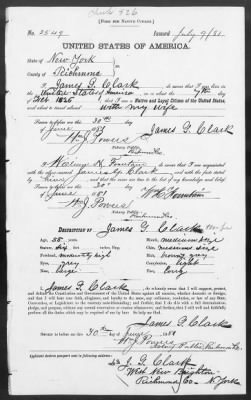 [FORM FOR NATIVE CITIZEN.]
No. 2549 Issued July 9/81
UNITED STATES OF AMERICA.
STATE OF New York
COUNTY OF Richmond
I, James G. Clark do swear that I was born in
the United States of America on or about the 7th day
of Oct 1825; that I am a Native and Loyal Citizen of the United States,
and about to travel abroad with my wife
Sworn to before me this 30th
day of June 1881 James G. Clark
Wm J. Powers
Notary Public
Richmond Co
do swear that I am acquainted
with the above named James G. Clark and with the facts
Sworn to before me this 30th
day of June
Wm J. Powers
Richmond Co
DESCRIPTION OF James G. Clark
Age: 55 years
Stature:
Forehead: moderately high
Eyes: gray
Nose: large
Mouth: medium size
Chin: medium size
Hair:
Complexion: light
Face: long
I, James G. Clark do solemnly swear that I will support, protect and
defend the Constitution and Government of the United States against all enemies, whether domestic or foreign,
and that I will bear true faith, allegiance, and loyalty to the same, any ordinance, resolution, or law of any State,
Convention, or Legislature to the contrary notwithstanding; and further, that I do this with a full determination,
pledge, and purpose, without any mental reservation or evasion whatsoever; and, further, that I will well and
faithfully perform all the duties which may be required of me by law: So help me God.
James G. Clark
Sworn to before me this 30th day of June 1881
Wm J. Powers
Notary Public Richmond Co.
J. G. Clark
West New Brighton
Richmond Co N. York